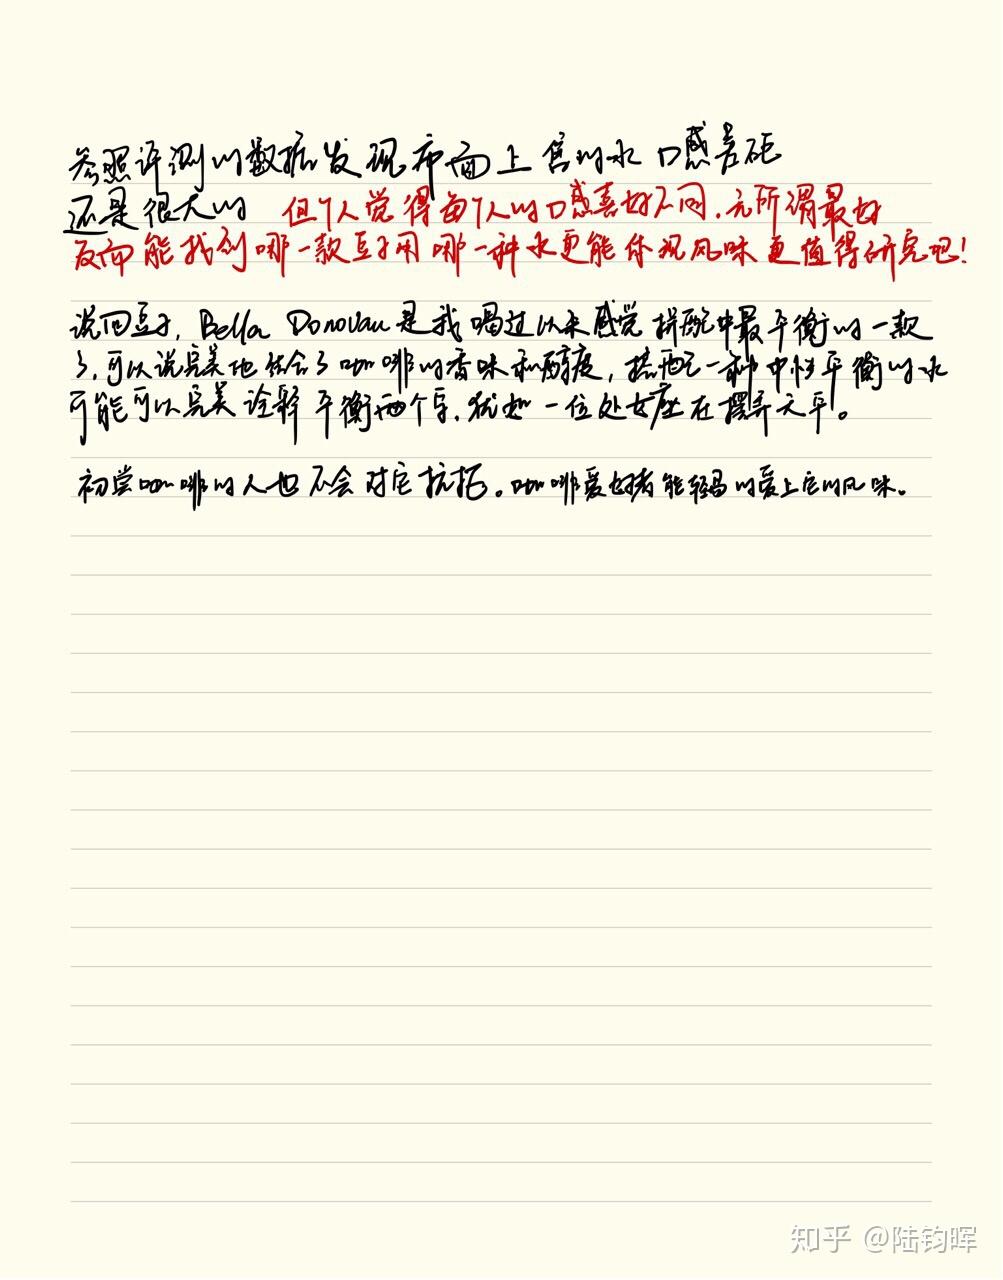 参照评测的数据发现市面上售的水 口感差距
还是很大的 但个人觉得每个人的口感喜好不同，无所谓最好
反而能找到哪一款豆子用哪一种水更能体现风味更值得研究吧！
说回豆子，Bella Donovan 是我喝过以来感觉拼配中最平衡的一款
了，可以说完美地结合了咖啡的香味和醇度，搭配一种中性平衡的水
可能可以完美诠释平衡两个字，犹如一位处女座在摆弄天平。
初尝咖啡的人也不会对它抗拒。咖啡爱好者能轻易的爱上它的风味。
知乎 @陆钧晖